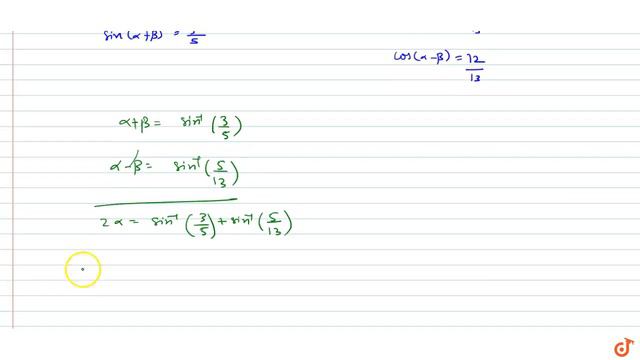 sin(α+β) = 3/5
cos(α-β) = 12/13
α+β = sin⁻¹(3/5)
α-β = sin⁻¹(5/13)
2α = sin⁻¹(3/5) + sin⁻¹(5/13)